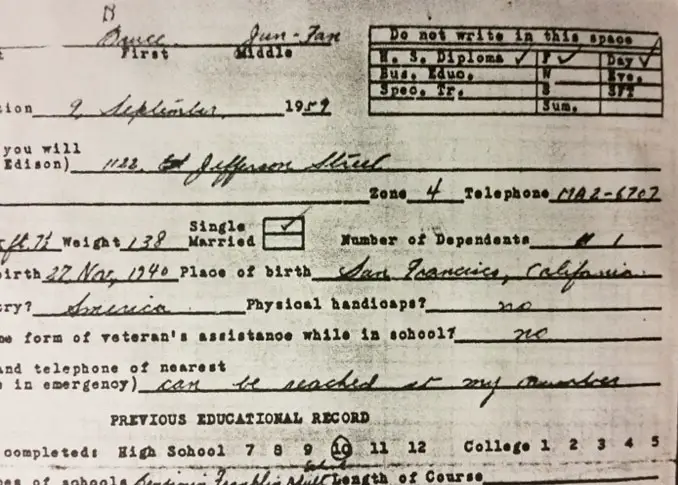 Bruce Jun-Fan
First Middle
Do not write in this space
H. S. Diploma ✓ F ✓ Day ✓
Bus. Educ. W Eve.
Spec. Tr. S SFT
Sum.
tion 9 September 1959
you will
Edison) 1122 Jefferson Street
Zone 4 Telephone MA2-6707
ft. 7½ Weight 138 Single ✓
Married Number of Dependents 1
irth 27 Nov, 1940 Place of birth San Francisco, California
ry? America Physical handicaps? no
me form of veteran's assistance while in school? no
and telephone of nearest
e in emergency) can be reached at my number
PREVIOUS EDUCATIONAL RECORD
completed: High School 7 8 9 10 11 12 College 1 2 3 4 5
es of schools Benjamin Franklin Adult School Length of Course